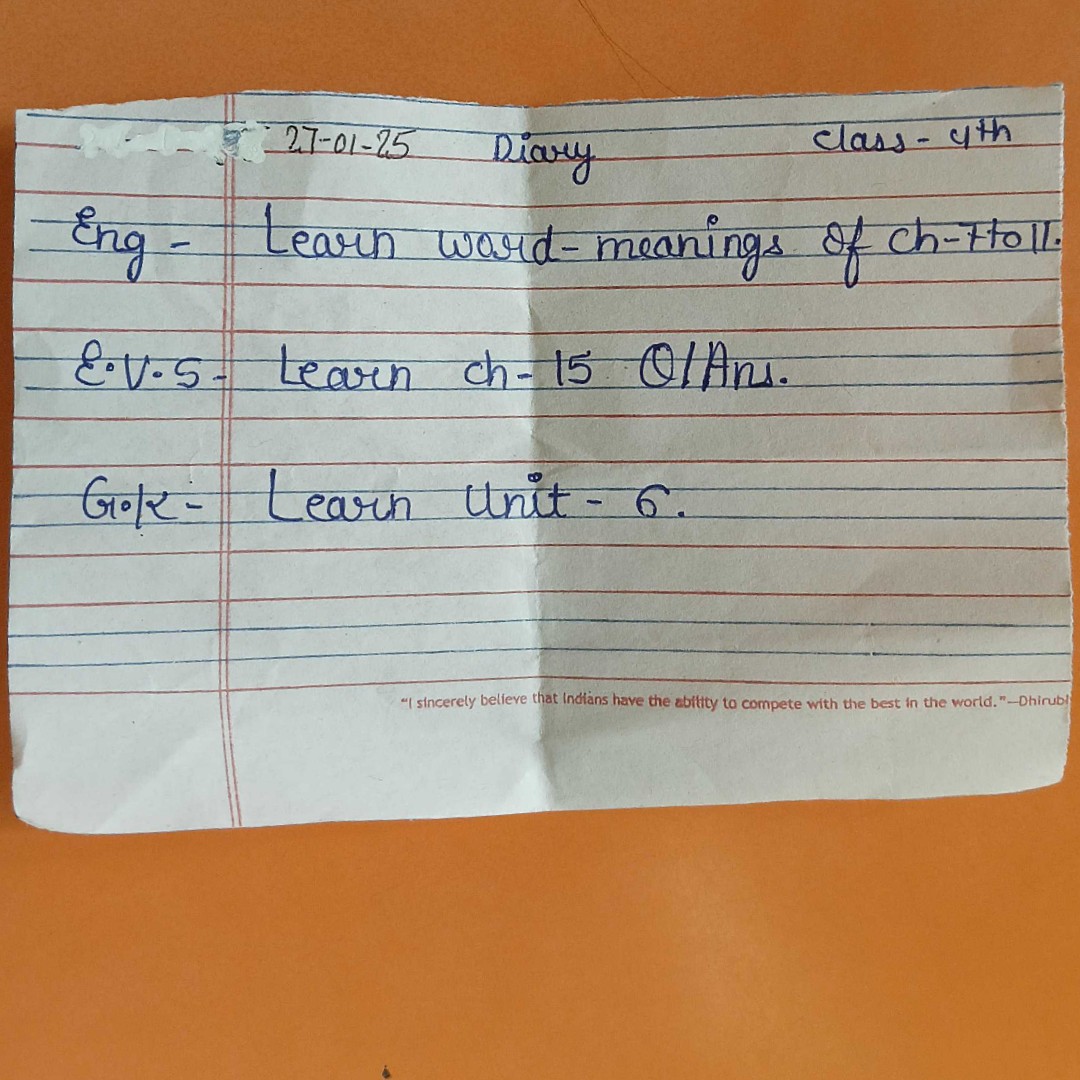 27-01-25 Diary Class - 4th
Eng - Learn word-meanings of ch-7 to 11.
E.V.S - Learn ch- 15 Q/Ans.
G.K - Learn Unit - 6.
"I sincerely believe that Indians have the ability to compete with the best in the world."—Dhirubh